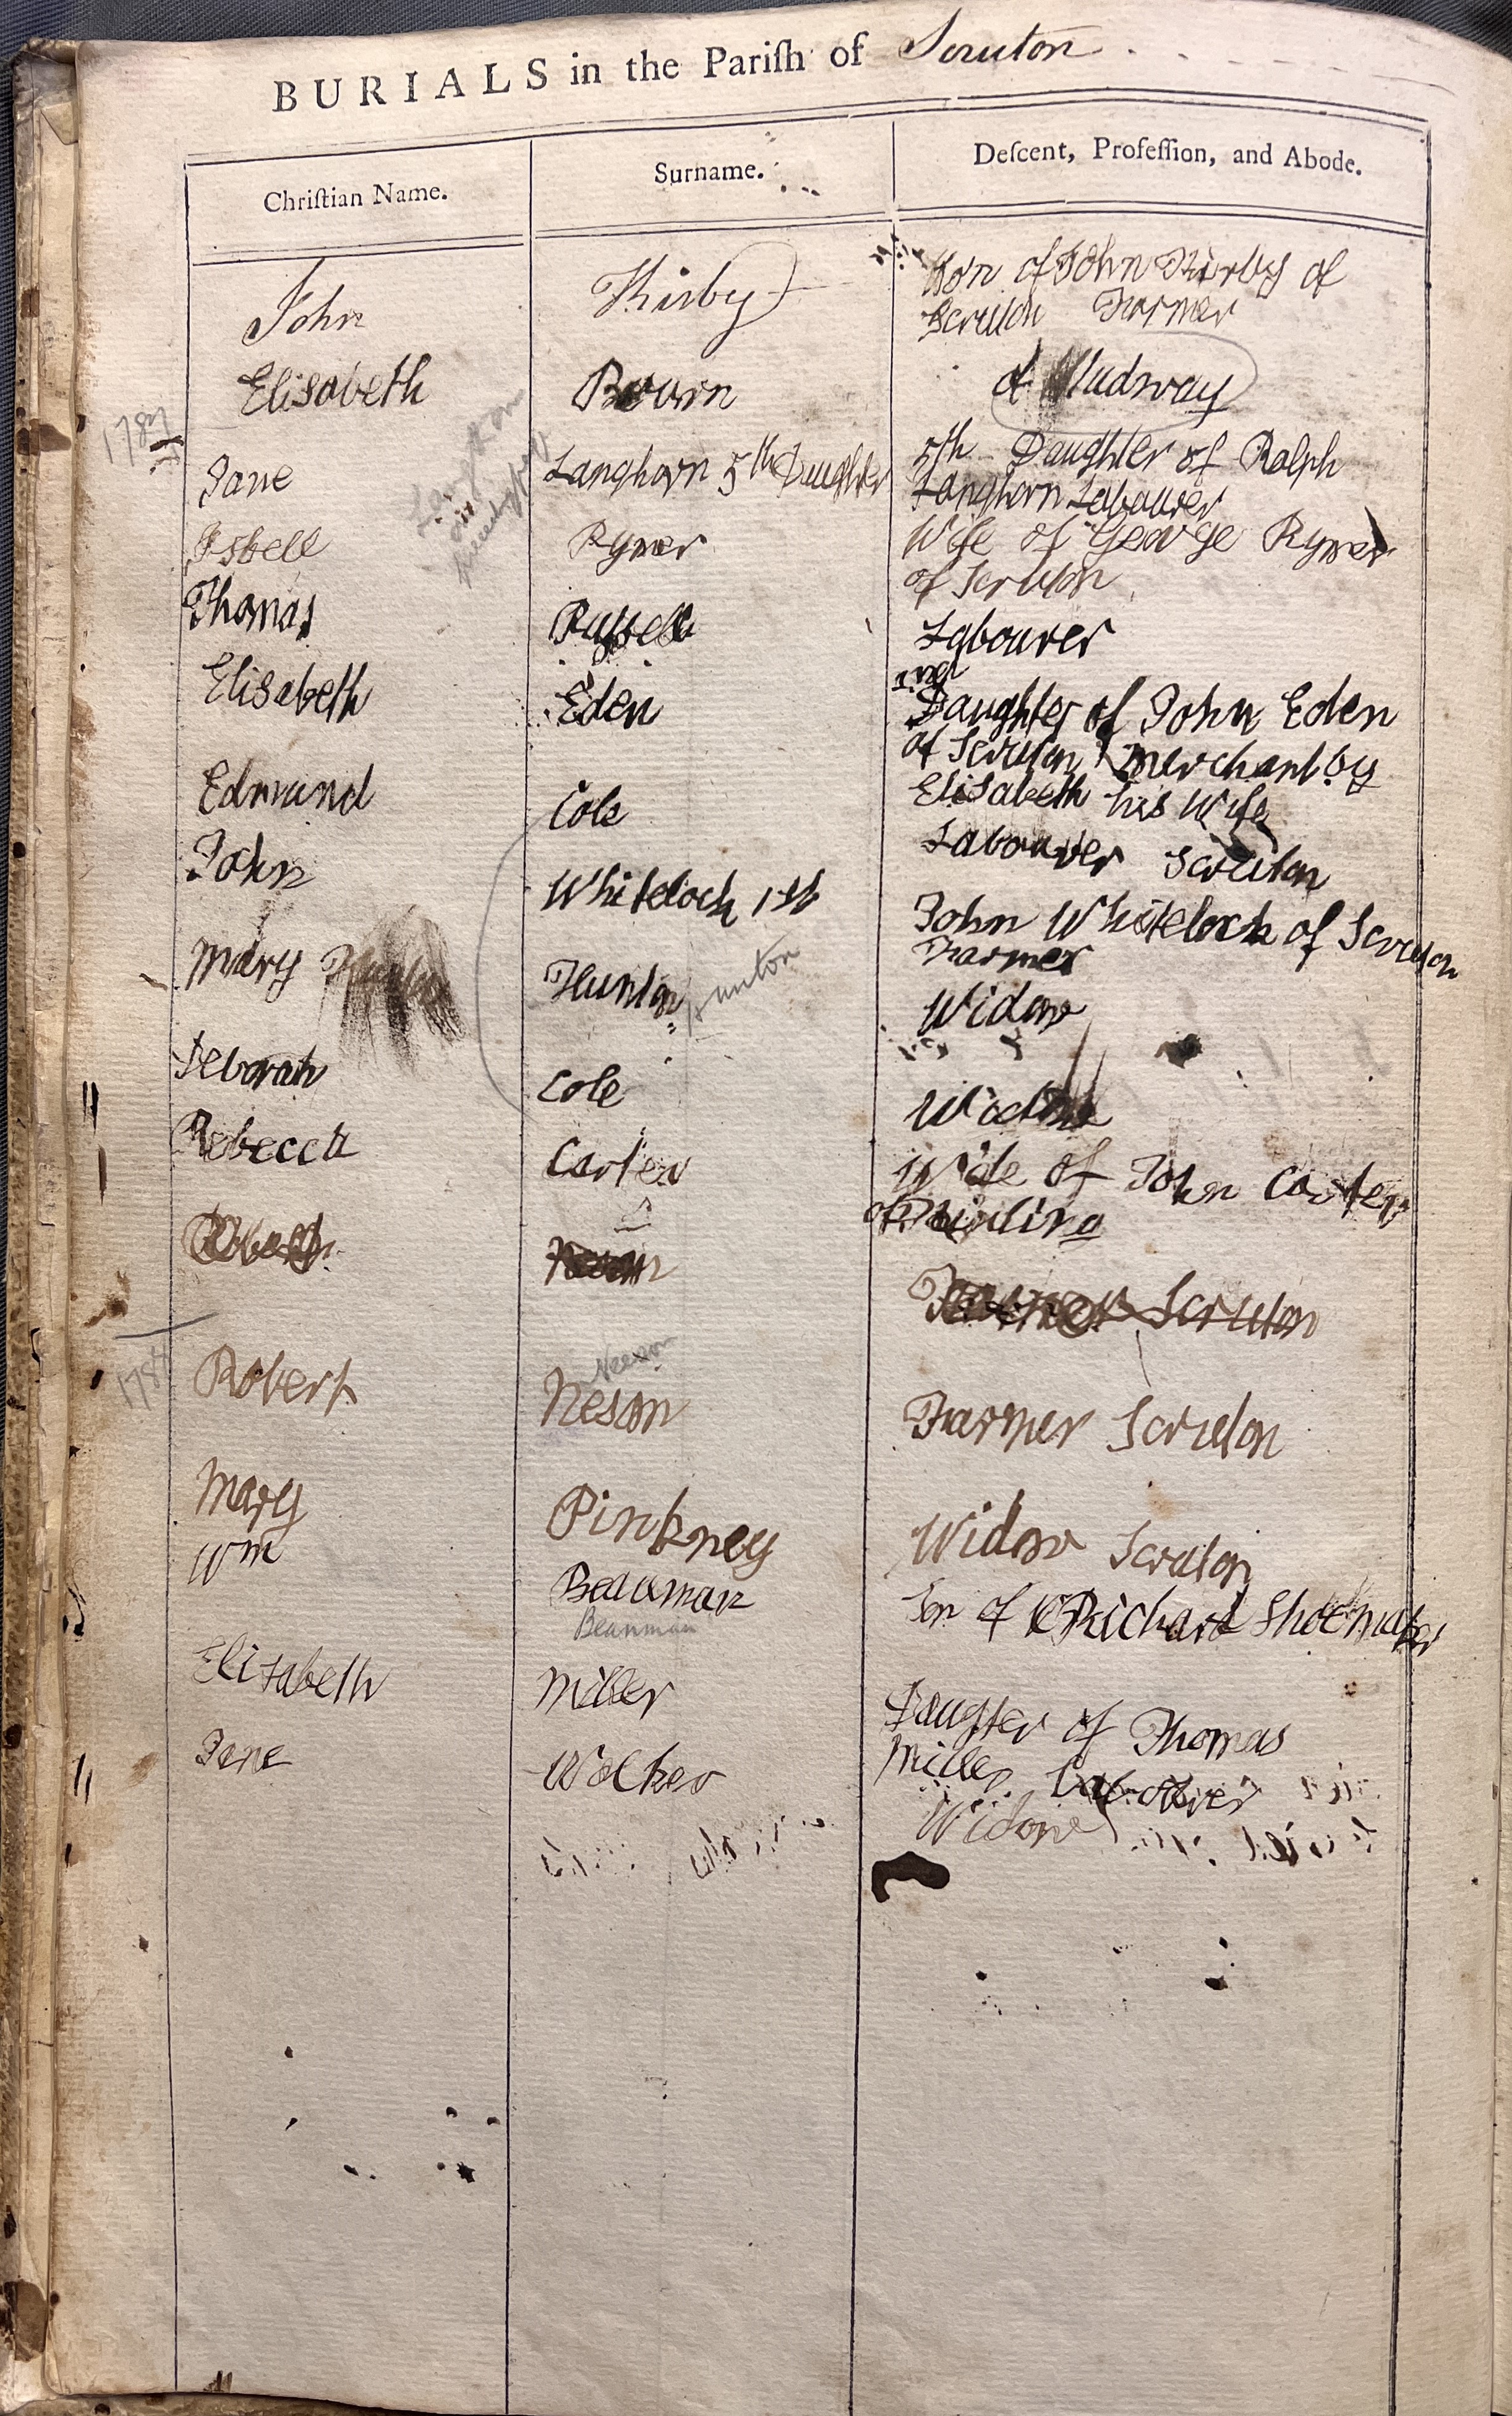 BURIALS in the Pariſh of Scruton
Chriſtian Name. Surname. Deſcent, Profeſſion, and Abode.
John Kirby Son of John Kirby of
Scruton Farmer
Elisabeth of Mudway
1787
Jane Langhorn 5th Daughter 5th Daughter of Ralph
Langhorn Labourer
Isbell Rymer Wife of George Rymer
of Scruton
Thomas Russell Labourer
Elisabeth Eden
Daughter of John Eden
of Scruton Merchant by
Elisabeth his Wife
Edmund Cole Labourer Scruton
John Whitelock 1st John Whitelock of Scruton
Farmer
Mary Hunton Hunton Widow
Deborah Cole Widow
Rebecca Carter Wife of John Carter
of
Robert Neson Farmer Scruton
178
Neeson
Robert Neson Farmer Scruton
Mary Pinkney Widow Scruton
Wm Beauman Son of Richard Shoemaker
Beanman
Elisabeth Miller Daugter of Thomas
Miller Labourer
Jane Walker Widow